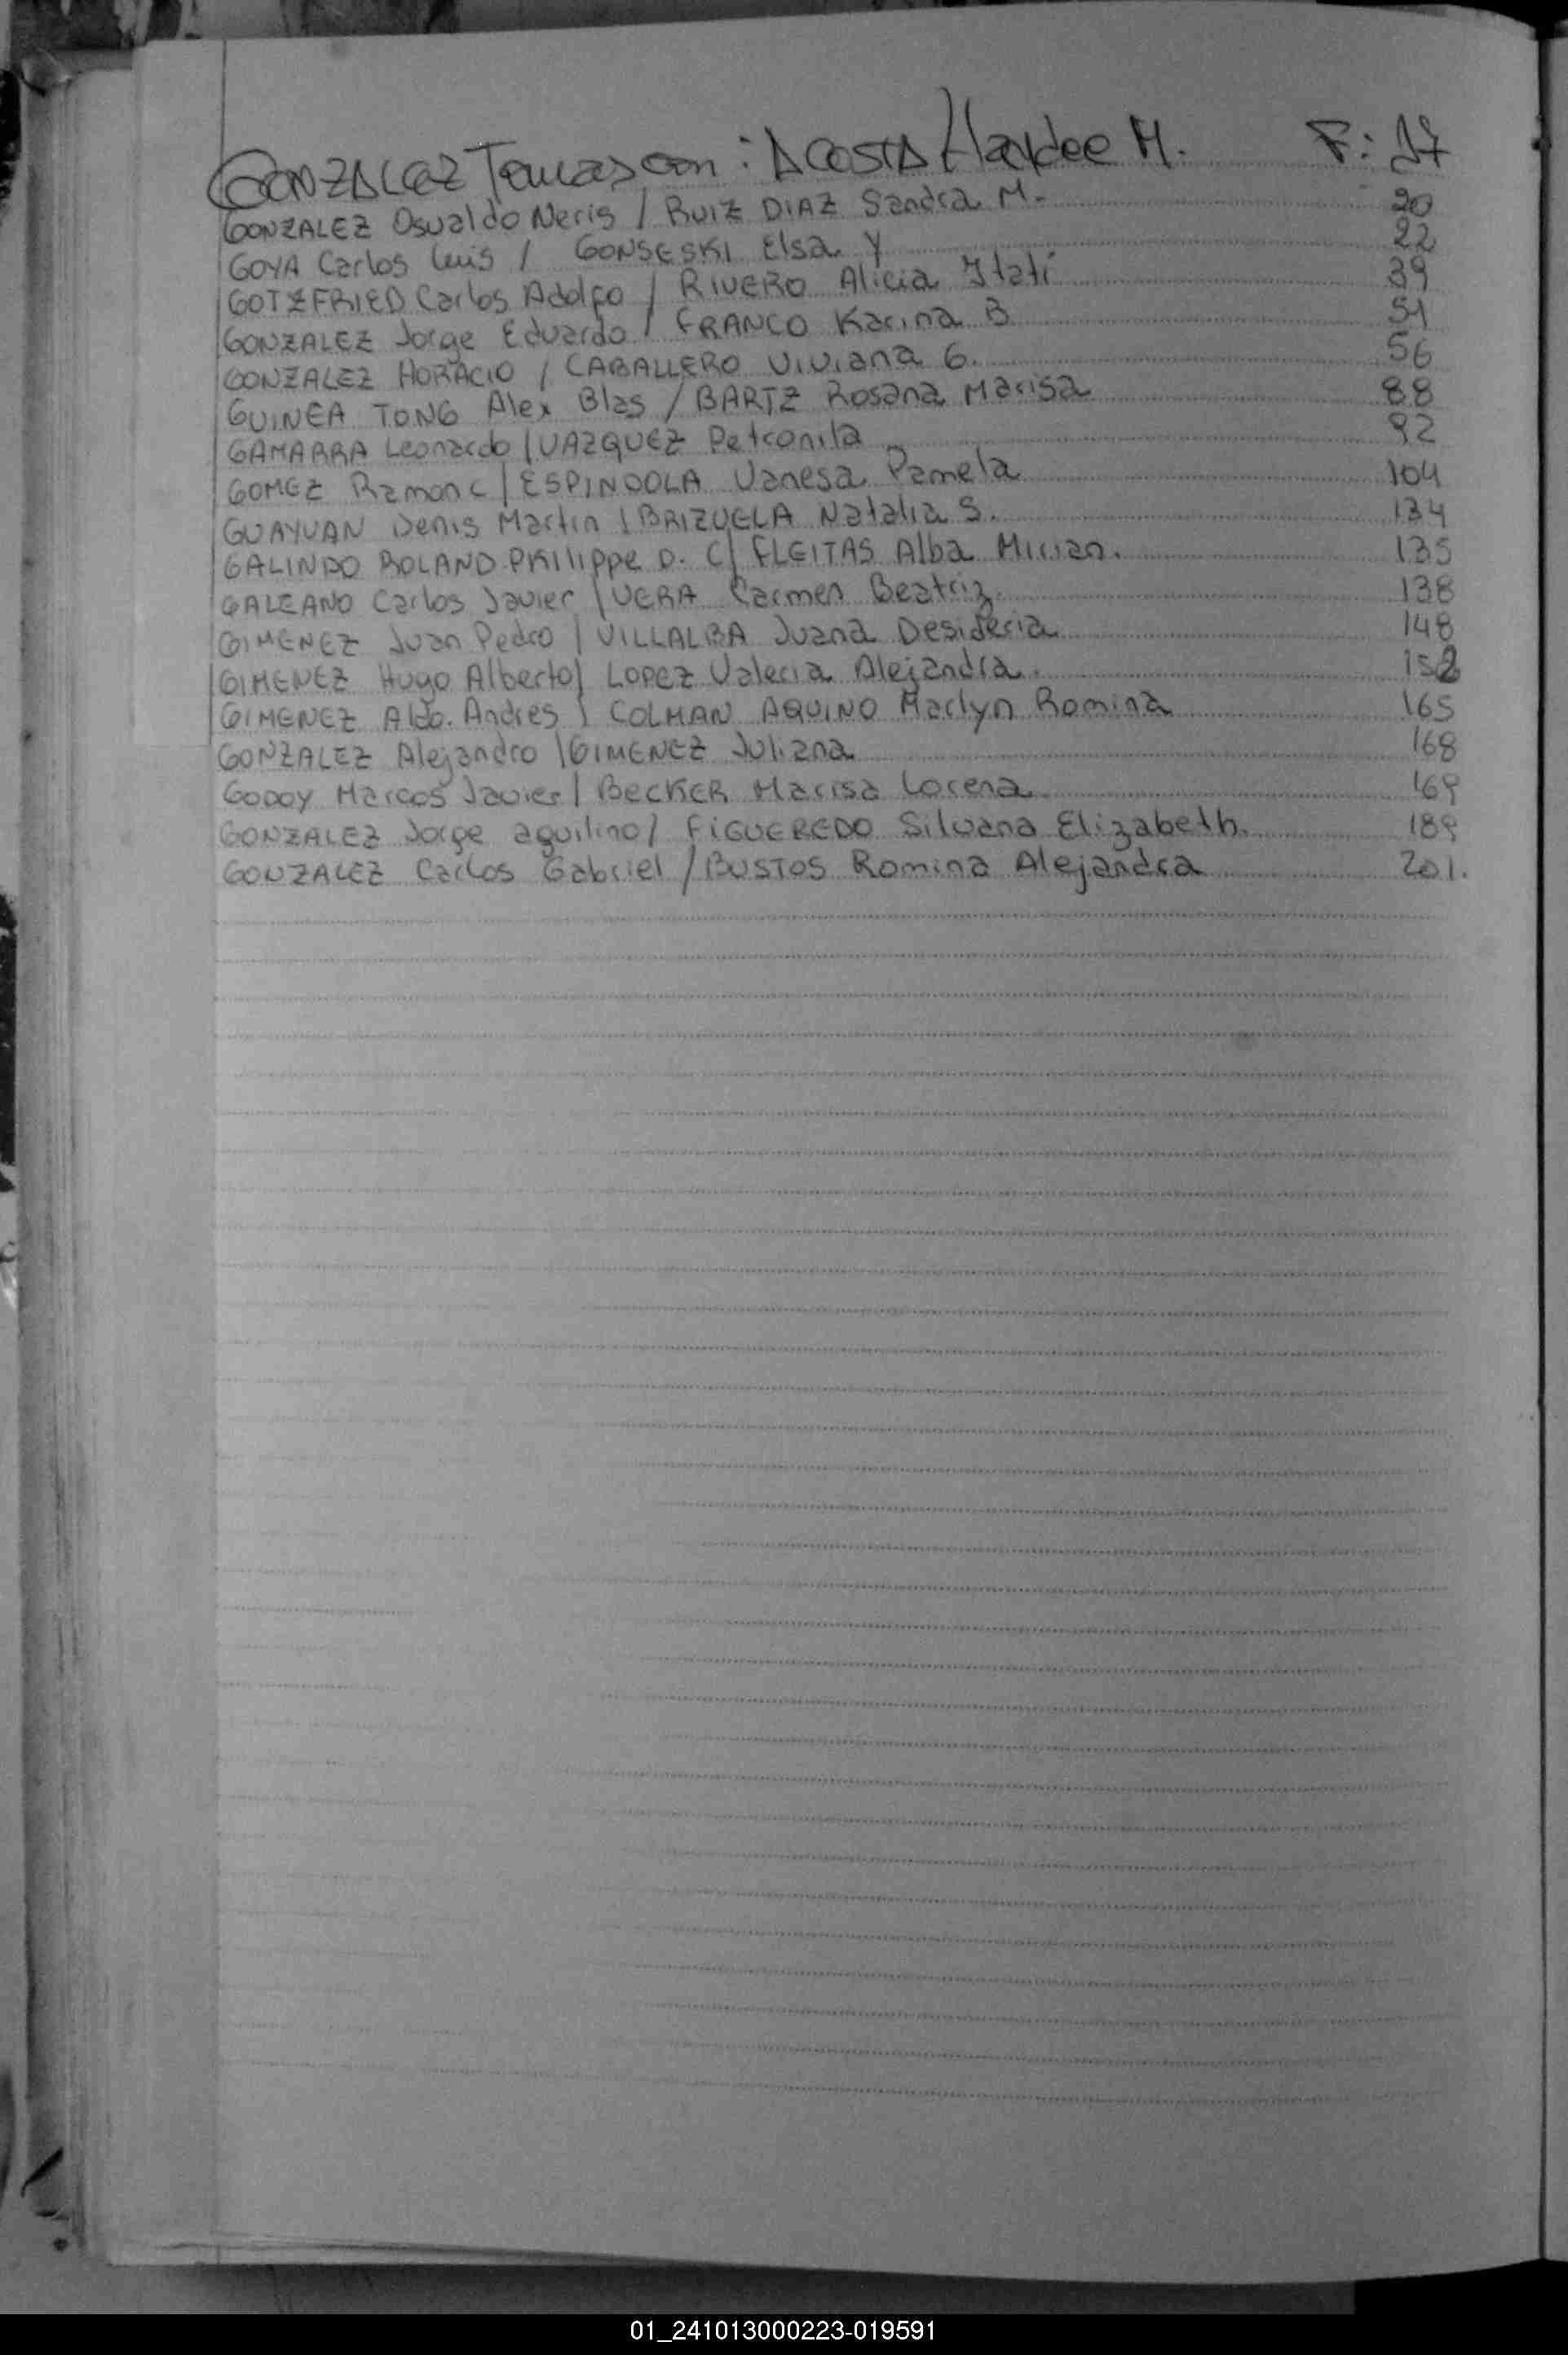 GONZALEZ Tomas con: ACOSTA Haydee M. F: 17
GONZALEZ Osvaldo Neris / RUIZ DIAZ Sandra M. 20
GOYA Carlos Luis / GONSESKI Elsa Y 22
GOTZFRIED Carlos Adolfo / RIVERO Alicia Itatí 39
GONZALEZ Jorge Eduardo / FRANCO Karina B 51
GONZALEZ HORACIO / CABALLERO Viviana G. 56
GUINEA TONG Alex Blas / BARTZ Rosana Marisa 88
GAMARRA Leonardo / VAZQUEZ Petronila 92
GOMEZ Ramon C / ESPINDOLA Vanesa Pamela 104
GUAYUAN Denis Martin / BRIZUELA Natalia S. 134
GALINDO ROLAND Philippe D. C/ FLEITAS Alba Mirian. 135
GALEANO Carlos Javier / VERA Carmen Beatriz 138
GIMENEZ Juan Pedro / VILLALBA Juana Desideria 148
GIMENEZ Hugo Alberto / LOPEZ Valeria Alejandra. 152
GIMENEZ Aldo. Andres / COLMAN AQUINO Marlyn Romina 165
GONZALEZ Alejandro / GIMENEZ Juliana 168
GODOY Marcos Javier / BECKER Marisa Lorena 169
GONZALEZ Jorge aquilino / FIGUEREDO Silvana Elizabeth. 189
GONZALEZ Carlos Gabriel / BUSTOS Romina Alejandra 201.
01_241013000223-019591